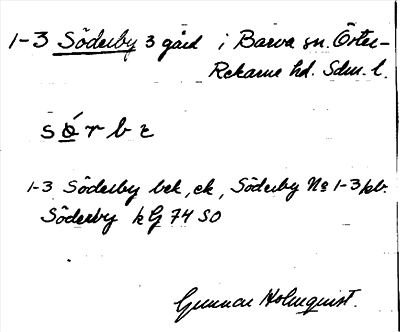 1-3 Söderby 3 gård i Barva sn. Öster-
Rekarne hd. Sdm. l.
sǿrbɛ
1-3 Söderby bek, ek, Söderby № 1-3 jkb.
Söderby kG 74 SO
Gunnar Holmquist.